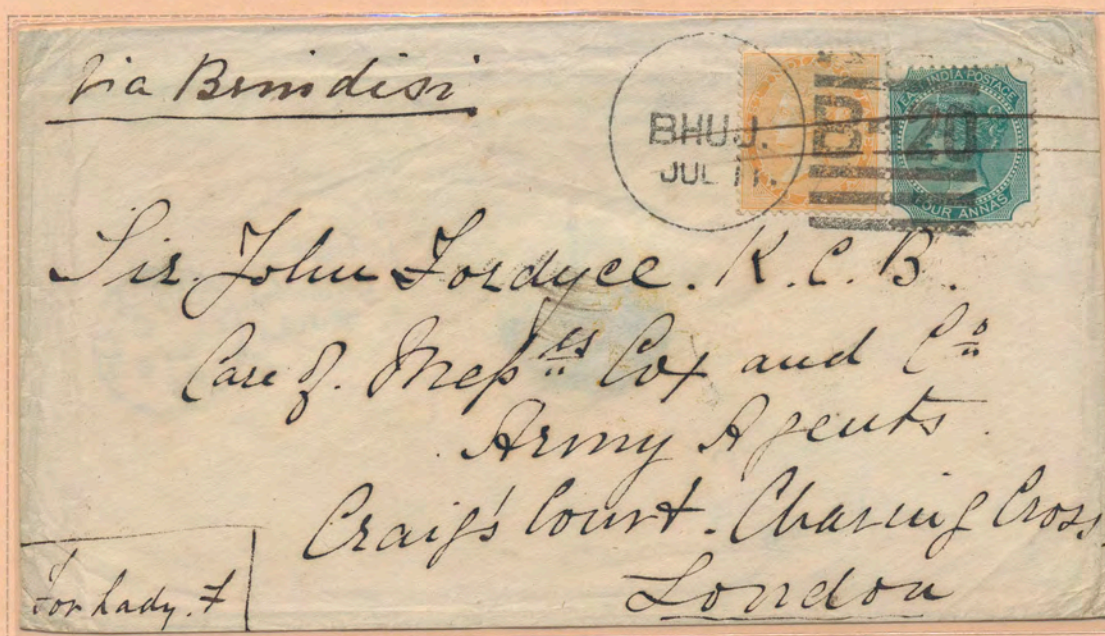 Via Brindisi
BHUJ.
JUL 11.
B-20
EAST INDIA POSTAGE
FOUR ANNAS
Sir John Fordyce. K. C. B.
Care of. Messrs Cox and Co
Army Agents.
Craig's Court. Charing Cross
London
For Lady. F